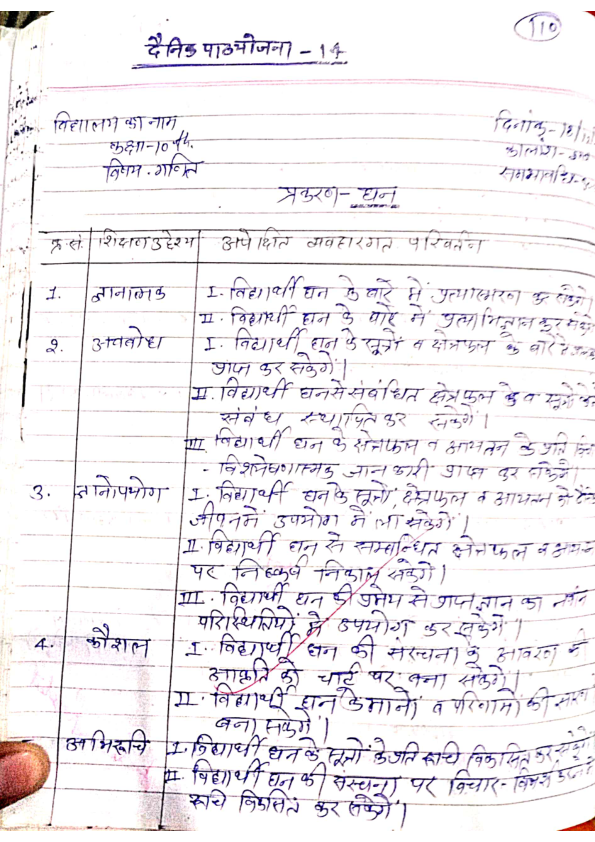 110
दैनिक पाठयोजना - 14
विद्यालय का नाम
दिनांक - 18/
कक्षा - 10 th.
कालांश -
विषय - गणित
समयावधि -
प्रकरण - घन
क्र.सं. शिक्षण उद्देश्य अपेक्षित व्यवहारगत परिवर्तन
1. ज्ञानात्मक I. विद्यार्थी घन के बारे में प्रत्यास्मरण कर सकेंगे।
II. विद्यार्थी घन के बारे में प्रत्याभिज्ञान कर सकेंगे
2. अवबोध I. विद्यार्थी घन के सूत्रों व क्षेत्रफल के बारे में
प्राप्त कर सकेंगे।
II. विद्यार्थी घन से संबंधित क्षेत्रफल के व सूत्रों के
संबंध स्थापित कर सकेंगे।
III. विद्यार्थी घन के क्षेत्रफल व आयतन के प्रति
- विशलेषणात्मक जानकारी प्राप्त कर सकेंगे।
3. ज्ञानोपयोग I. विद्यार्थी घन के सूत्रों, क्षेत्रफल व आयतन को
जीवन में उपयोग में ला सकेंगे।
II. विद्यार्थी घन से सम्बन्धित क्षेत्रफल व
पर निष्कर्ष निकाल सकेंगे।
III. विद्यार्थी घन की प्रमेय से प्राप्त ज्ञान का नवीन
परिस्थितियों में उपयोग कर सकेंगे।
4. कौशल I. विद्यार्थी घन की संरचना के आवरण
आकृति को चार्ट पर बना सकेंगे।
II. विद्यार्थी घन के मानों व परिणामों की
बना सकेंगे।
अभिरूचि I. विद्यार्थी घन के सूत्रों के प्रति रूचि विकसित कर सकेंगे
II. विद्यार्थी घन की संरचना पर विचार - विमर्श
रूचि विकसित कर सकेंगे।